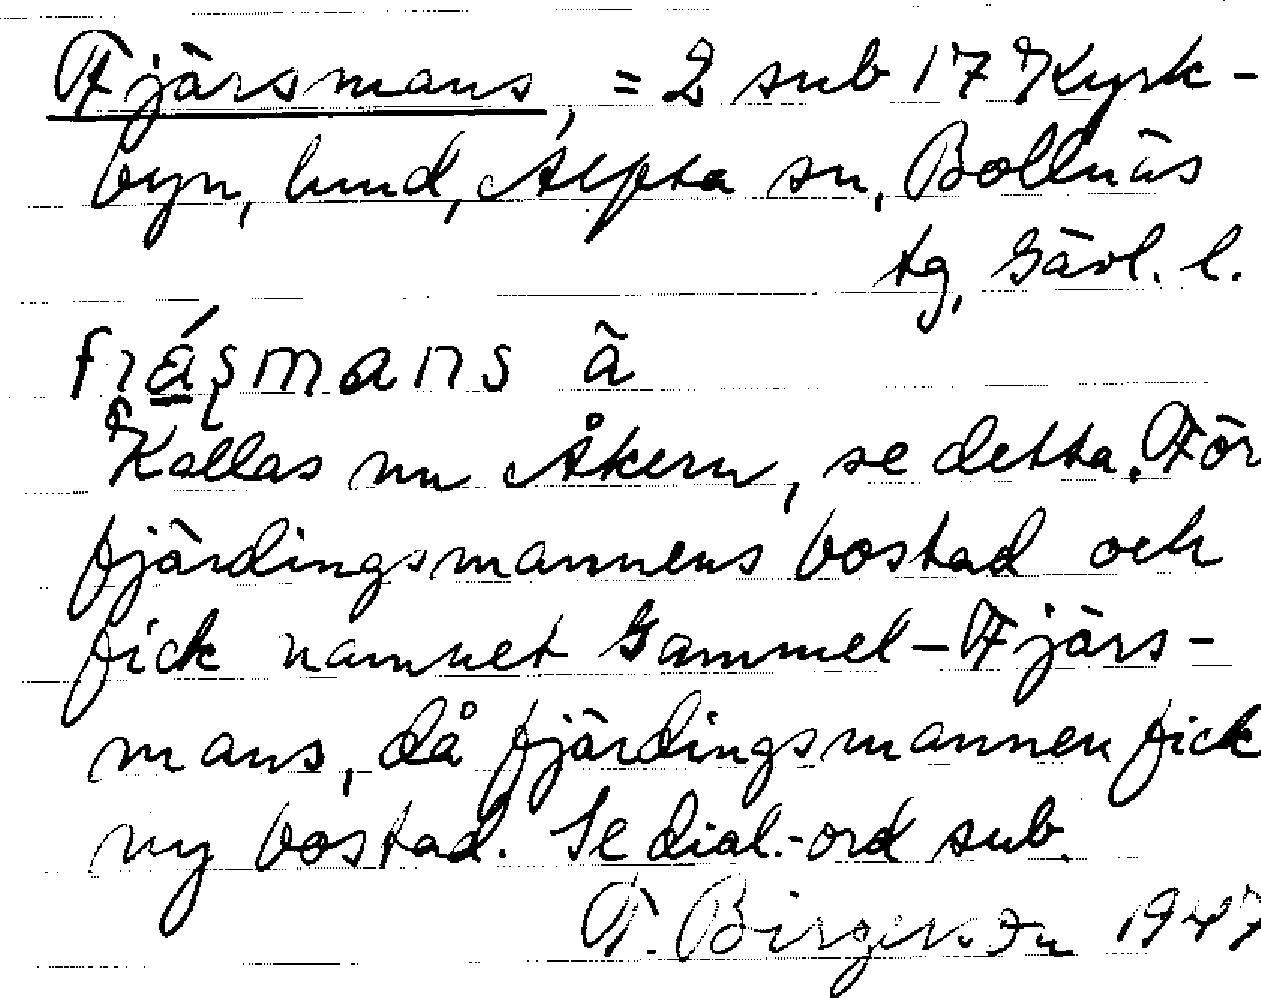 Fjärsmans, = 2 sub 17 Kyrk-
byn, hmd, Alfta sn, Bollnäs
tg, Gävl. l.
fɿáʂmans ä
Kallas nu Åkern, se detta. För
fjärdingsmannens bostad och
fick namnet Gammel-Fjärs-
mans, då fjärdingsmannen fick
ny bostad. Se dial.-ord sub.
F. Birgersson 1947